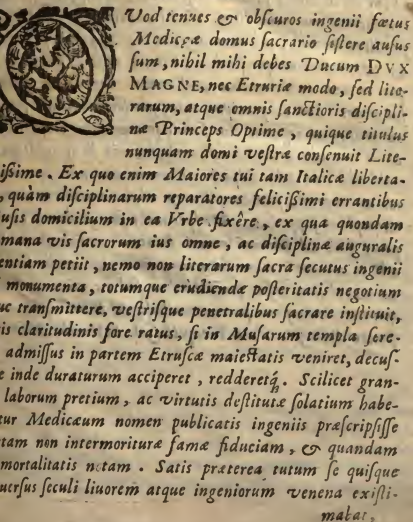 Quod tenues & obſcuros ingenii fœtus
Medicęæ domus ſacrario ſiſtere auſus
ſum, nibil mihi debes Ducum DVX
MAGNE, nec Etruriæ modo, ſed lite-
rarum, atque omnis ſanctioris diſcipli-
næ Princeps Optime, quique titulus
nunquam domi veſtræ conſenuit Lite-
iſſime. Ex quo enim Maiores tui tam Italicæ liberta-
, quàm diſciplinarum reparatores feliciſſimi errantibus
uſis domicilium in ea Vrbe fixêre, ex qua quondam
mana vis ſacrorum ius omne, ac diſciplinæ auguralis
entiam petiit, nemo non literarum ſacra ſecutus ingenii
monumenta, totumque erudiendæ poſteritatis negotium
uc tranſmittere, veſtriſque penetralibus ſacrare inſtituit,
is claritudinis fore ratus, ſi in Muſarum templa ſere-
admiſſus in partem Etruſcæ maieſtatis veniret, decuſ-
e inde duraturum acciperet, redderetq́. Scilicet gran-
laborum pretium, ac virtutis deſtitutæ ſolatium habe-
tur Medicæum nomen publicatis ingeniis præſcripſiſſe
tam non intermorituræ famæ fiduciam, & quandam
mortalitatis notam. Satis præterea tutum ſe quiſque
uerſus ſeculi liuorem atque ingeniorum venena exiſti-
mabat,